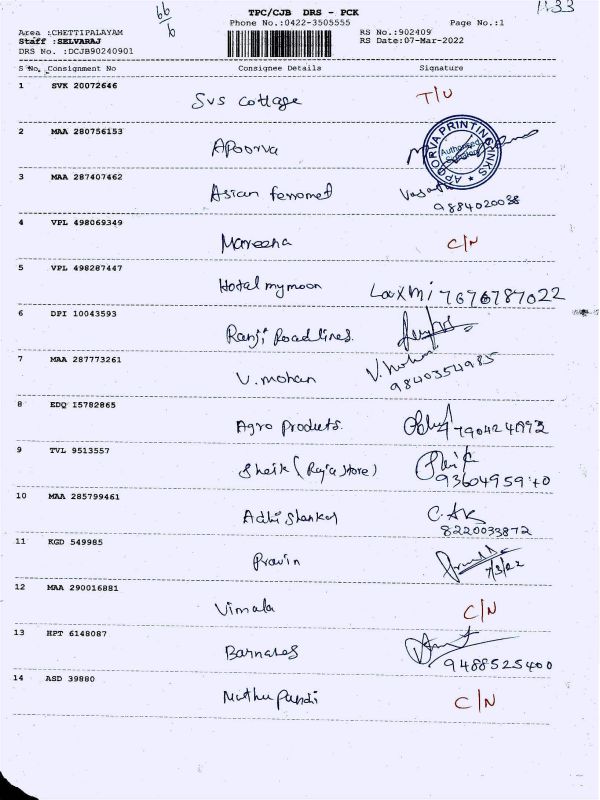 TPC/CJB DRS - PCK
1133
66
6
Phone No.:0422-3505555
Page No.:1
Area :CHETTIPALAYAM
RS No.:902409
Staff :SELVARAJ
RS Date:07-Mar-2022
DRS No. :DCJB90240901
S No. Consignment No Consignee Details Signature
1 SVK 20072646
Svs cottage T/U
2 MAA 280756153
APoorva
APOORVA PRINTING INKS
Authorised Signatory
3 MAA 287407462
Asian ferromet
9884020038
4 VPL 498069349
Mareena C/N
5 VPL 498287447
Hotal mymoon Laxmi 7676787022
6 DPI 10043593
Ranji Roadlines.
7 MAA 287773261
V. mohan V. mohan
9840354985
8 EDQ I5782865
Agro products.
9 TVL 9513557
Sheik (Raja Store)
10 MAA 285799461
Adhi Shankar
8220033872
11 KGD 549985
Pravin
7/3/22
12 MAA 290016881
Vimala C/N
13 HPT 6148087
Barnabas
9488525400
14 ASD 39880
Muthu Pandi C/N